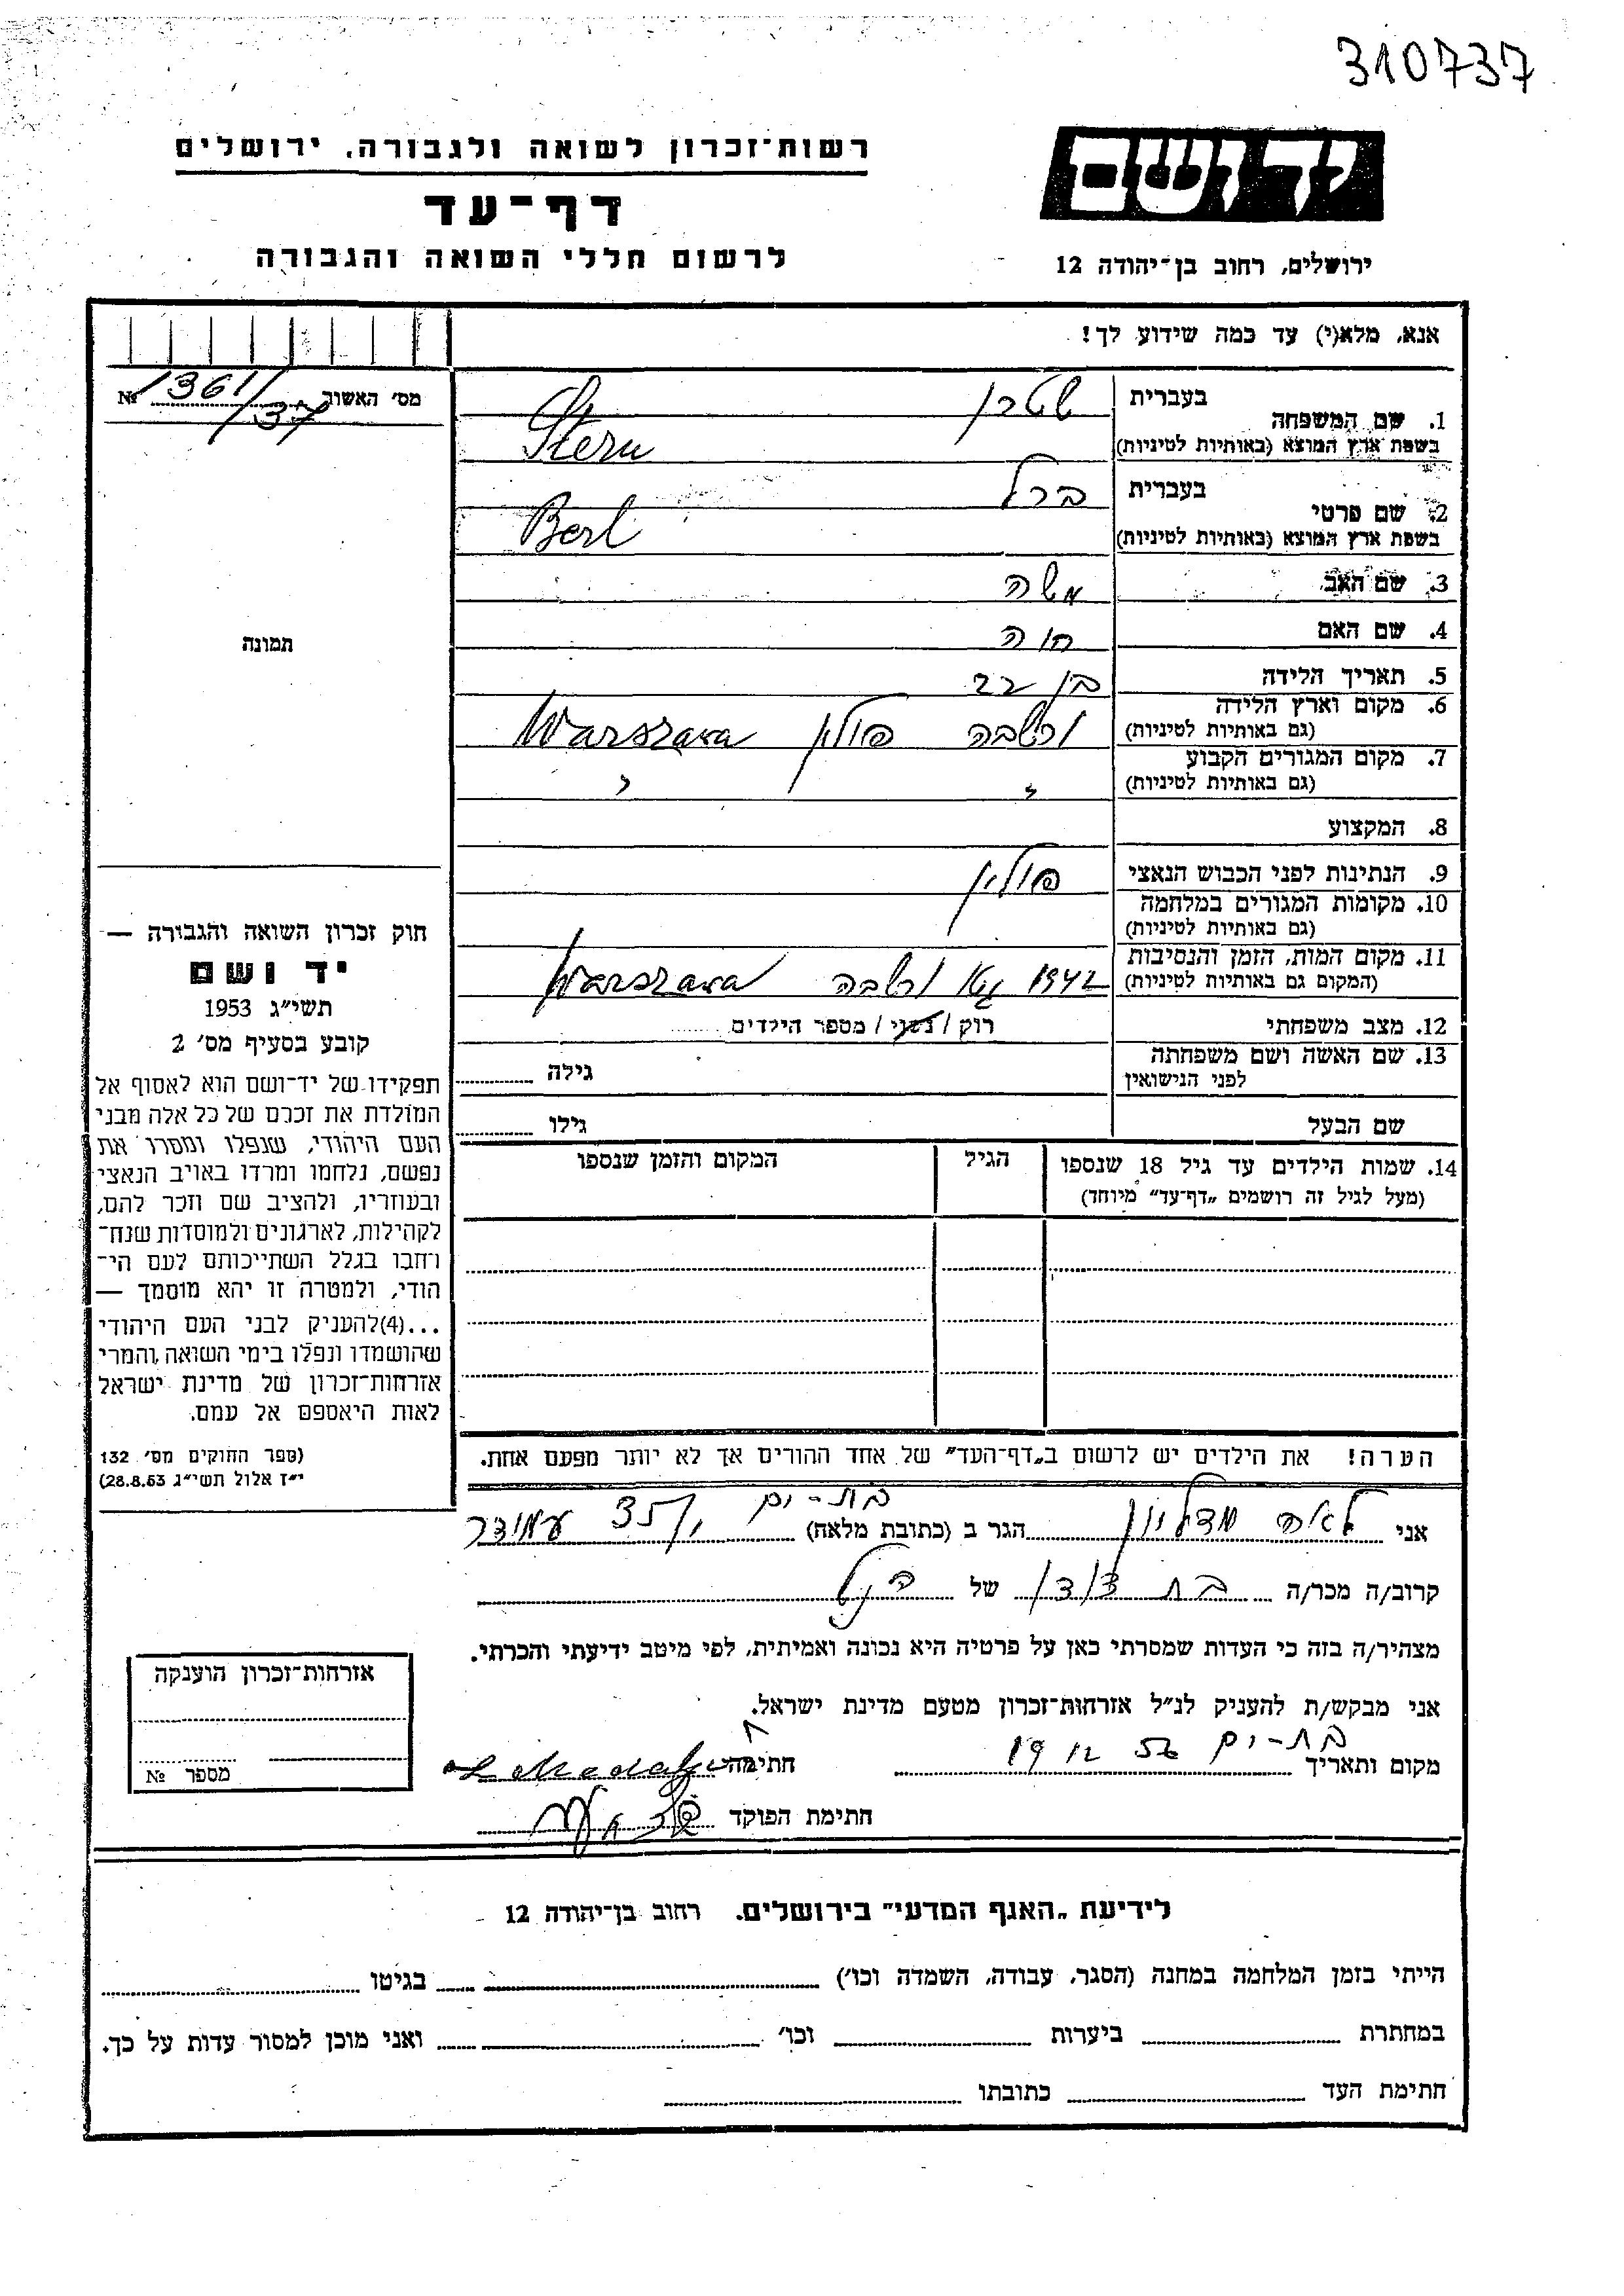 310737
ידושם
רשות־זכרון לשואה ולגבורה, ירושלים
דף־עד
לרשום חללי השואה והגבורה
ירושלים, רחוב בן־יהודה 12
אנא, מלא(י) עד כמה שידוע לך!
מס׳ האשור 1361/37 №
תמונה
1. שם המשפחה
בעברית שטרן
בשפת ארץ המוצא (באותיות לטיניות) Stern
2. שם פרטי
בעברית ברל
בשפת ארץ המוצא (באותיות לטיניות) Berl
3. שם האב משה
4. שם האם חוה
5. תאריך הלידה בן 22
6. מקום וארץ הלידה
(גם באותיות לטיניות) ורשבה פולין Warszawa
7. מקום המגורים הקבוע
(גם באותיות לטיניות) " "
8. המקצוע
9. הנתינות לפני הכבוש הנאצי פולין
10. מקומות המגורים במלחמה
(גם באותיות לטיניות)
11. מקום המות, הזמן והנסיבות
(המקום גם באותיות לטיניות) 1942 גטו ורשבה Warszawa
12. מצב משפחתי רוק / נשוי / מספר הילדים
13. שם האשה ושם משפחתה
לפני הנישואין גילה
שם הבעל גילו
14. שמות הילדים עד גיל 18 שנספו הגיל המקום והזמן שנספו
(מעל לגיל זה רושמים „דף־עד” מיוחד)
הערה! את הילדים יש לרשום ב„דף־העד” של אחד ההורים אך לא יותר מפעם אחת.
חוק זכרון השואה והגבורה —
יד ושם
תשי״ג 1953
קובע בסעיף מס׳ 2
תפקידו של יד־ושם הוא לאסוף אל
המולדת את זכרם של כל אלה מבני
העם היהודי, שנפלו ומסרו את
נפשם, נלחמו ומרדו באויב הנאצי
ובעוזריו, ולהציב שם וזכר להם,
לקהילות, לארגונים ולמוסדות שנח־
רחבו בגלל השתייכותם לעם הי־
הודי, ולמטרה זו יהא מוסמך —
...(4)להעניק לבני העם היהודי
שהושמדו ונפלו בימי השואה והמרי
אזרחות־זכרון של מדינת ישראל
לאות היאספם אל עמם.
(ספר החוקים מס׳ 132
י״ז אלול תשי״ג 28.8.53)
בת-ים
אני לאה מדליון הגר ב (כתובת מלאה) 35 עמידר
קרוב/ה מכר/ה בת דודן של הנ״ל
מצהיר/ה בזה כי העדות שמסרתי כאן על פרטיה היא נכונה ואמיתית, לפי מיטב ידיעתי והכרתי.
אני מבקש/ת להעניק לנ״ל אזרחות־זכרון מטעם מדינת ישראל.
מקום ותאריך בת-ים 19 12 56 חתימה
חתימת הפוקד
אזרחות־זכרון הוענקה
מספר №
לידיעת „האגף המדעי” בירושלים. רחוב בן־יהודה 12
הייתי בזמן המלחמה במחנה (הסגר, עבודה, השמדה וכו׳) בגיטו
במחתרת ביערות וכו׳ ואני מוכן למסור עדות על כך.
חתימת העד כתובתו